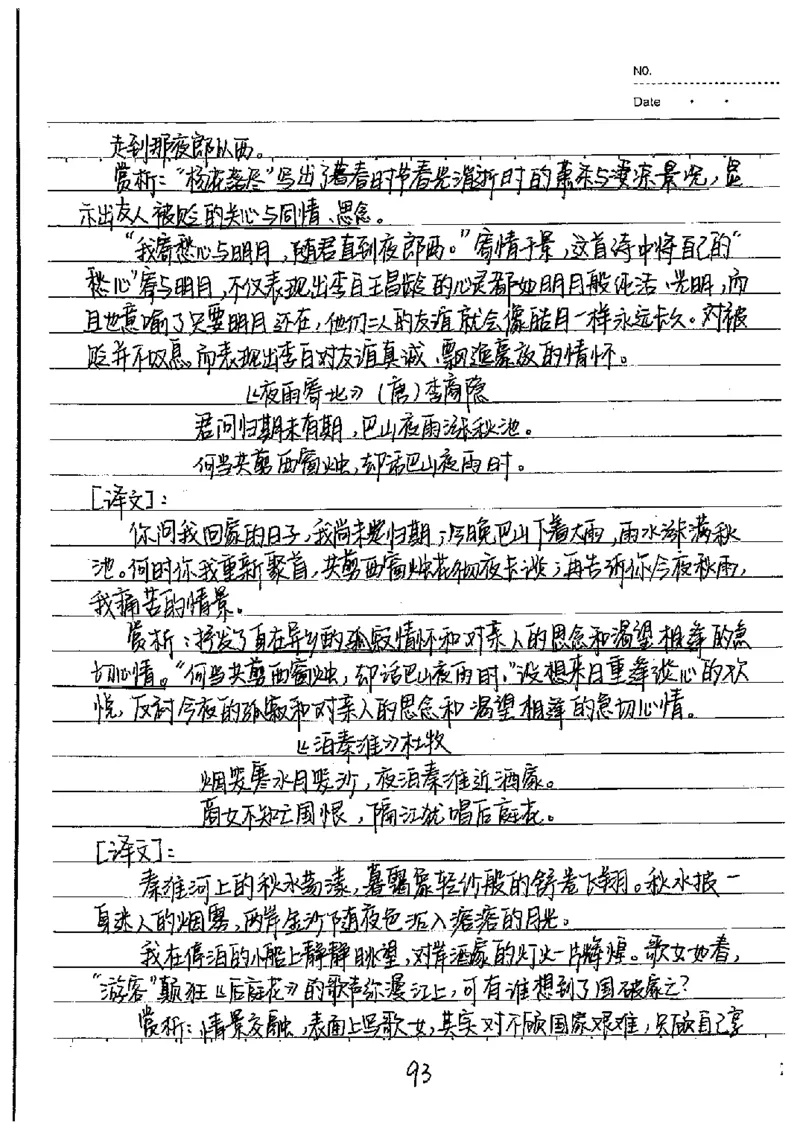 NO.
Date
走到那夜郎以西。
赏析："杨花落尽"写出了暮春时节春光消逝时的萧条与凄凉景况，显
示出友人被贬的关心与同情、思念。
"我寄愁心与明月，随君直到夜郎西。"寄情于景，这首诗中将自己的"
愁心"寄与明月，不仅表现出李白王昌龄的心灵都如明月般纯洁、光明，而
且也意喻了只要明月还在，他们二人的友谊就会像皓月一样永远长久。对被
贬并不叹息。而表现出李白对友谊真诚、飘逸豪放的情怀。
《夜雨寄北》（唐）李商隐
君问归期未有期，巴山夜雨涨秋池。
何当共剪西窗烛，却话巴山夜雨时。
[译文]：
你问我回家的日子，我尚未定归期；今晚巴山下着大雨，雨水涨满秋
池。何时你我重新聚首，共剪西窗烛花彻夜长谈；再告诉你今夜秋雨，
我痛苦的情景。
赏析：抒发了自在异乡的孤寂情怀和对亲人的思念和渴望相逢的急
切心情。"何当共剪西窗烛，却话巴山夜雨时。"设想来日重逢谈心的欢
悦，反衬今夜的孤寂和对亲人的思念和渴望相逢的急切心情。
《泊秦淮》杜牧
烟笼寒水月笼沙，夜泊秦淮近酒家。
商女不知亡国恨，隔江犹唱后庭花。
[译文]：
秦淮河上的秋水荡漾，暮霭象轻纱般的舒卷飞翔。秋水披一
身迷人的烟雾，两岸金沙随夜色沉入溶溶的月光。
我在停泊的小船上静静眺望，对岸酒家的灯火一片辉煌。歌女如春，
"游客"颠狂《后庭花》的歌声弥漫江上，可有谁想到了国破家亡？
赏析：情景交融，表面上写歌女，其实对不顾国家艰难，只顾自己享
93